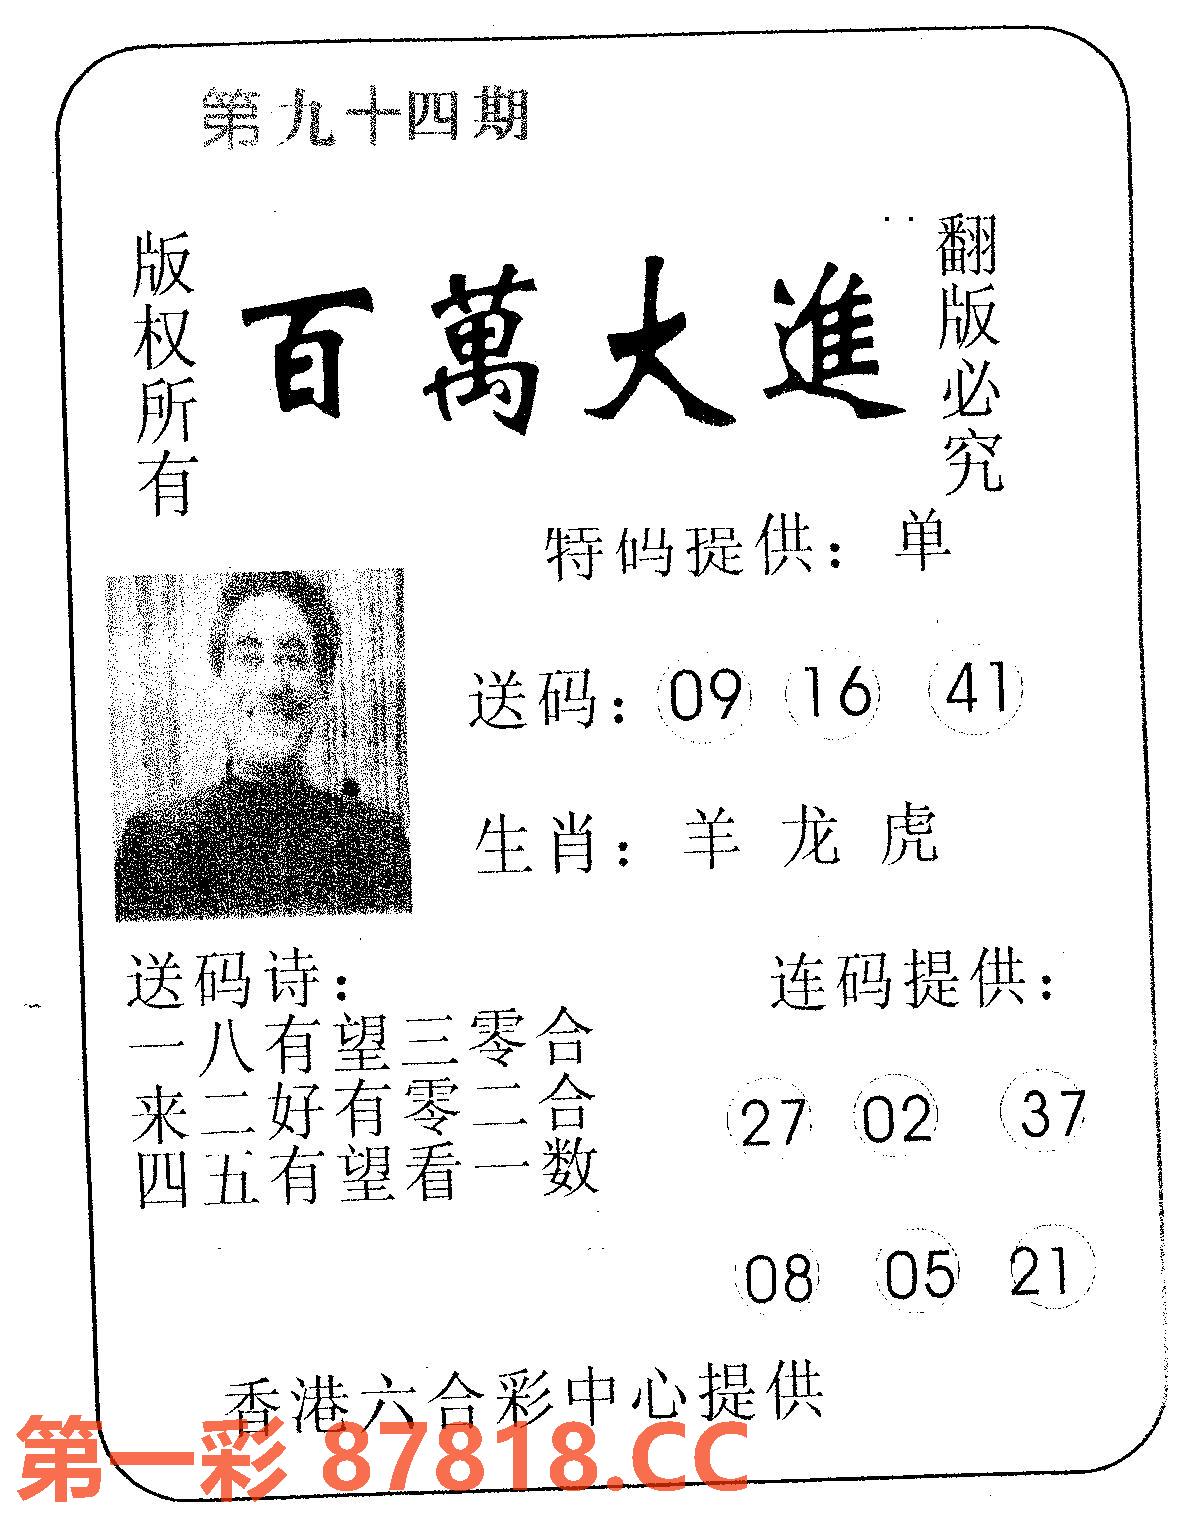 第九十四期
版权所有
百萬大進
翻版必究
特码提供：单
送码：09 16 41
生肖：羊 龙 虎
送码诗：
一八有望三零合
来二好有零二合
四五有望看一数
连码提供：
27 02 37
08 05 21
香港六合彩中心提供
第一彩 87818.CC